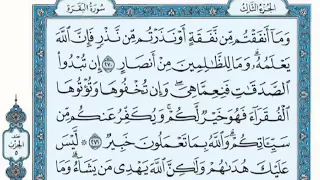 سُورَةُ البَقَرَةِ
الجُزْءُ الثَّالِثُ
وَمَآ أَنفَقْتُم مِّن نَّفَقَةٍ أَوْ نَذَرْتُم مِّن نَّذْرٍ فَإِنَّ ٱللَّهَ
يَعْلَمُهُۥ وَمَا لِلظَّٰلِمِينَ مِنْ أَنصَارٍ ٢٧٠ إِن تُبْدُوا۟
ٱلصَّدَقَٰتِ فَنِعِمَّا هِىَ وَإِن تُخْفُوهَا وَتُؤْتُوهَا
ٱلْفُقَرَآءَ فَهُوَ خَيْرٌ لَّكُمْ وَيُكَفِّرُ عَنكُم مِّن
سَيِّـَٔاتِكُمْ وَٱللَّهُ بِمَا تَعْمَلُونَ خَبِيرٌ ٢٧١ لَّيْسَ
عَلَيْكَ هُدَىٰهُمْ وَلَٰكِنَّ ٱللَّهَ يَهْدِى مَن يَشَآءُ وَمَا
الحزب
٥